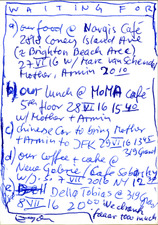 WAITING FOR
a) our food @ Nargis Café
2818 Coney Island Ave
(@ Brighton Beach Ave)
27 VI 16 w/ Marc van Schendel
Mother, Armin 2010
b) our lunch @ MoMA Café
5th floor 28 VI 16 15 40
w/ Mother + Armin
c) chinese Car to bring Mother
+ Armin to JFK 29 VI 16 1345
d) our coffee + cake @
Neue Galerie / Café Sabarsky
w/ 7 VII 2016 NY
e) Delia Tobias @ 319 Grand
8 VII 16 2000
much